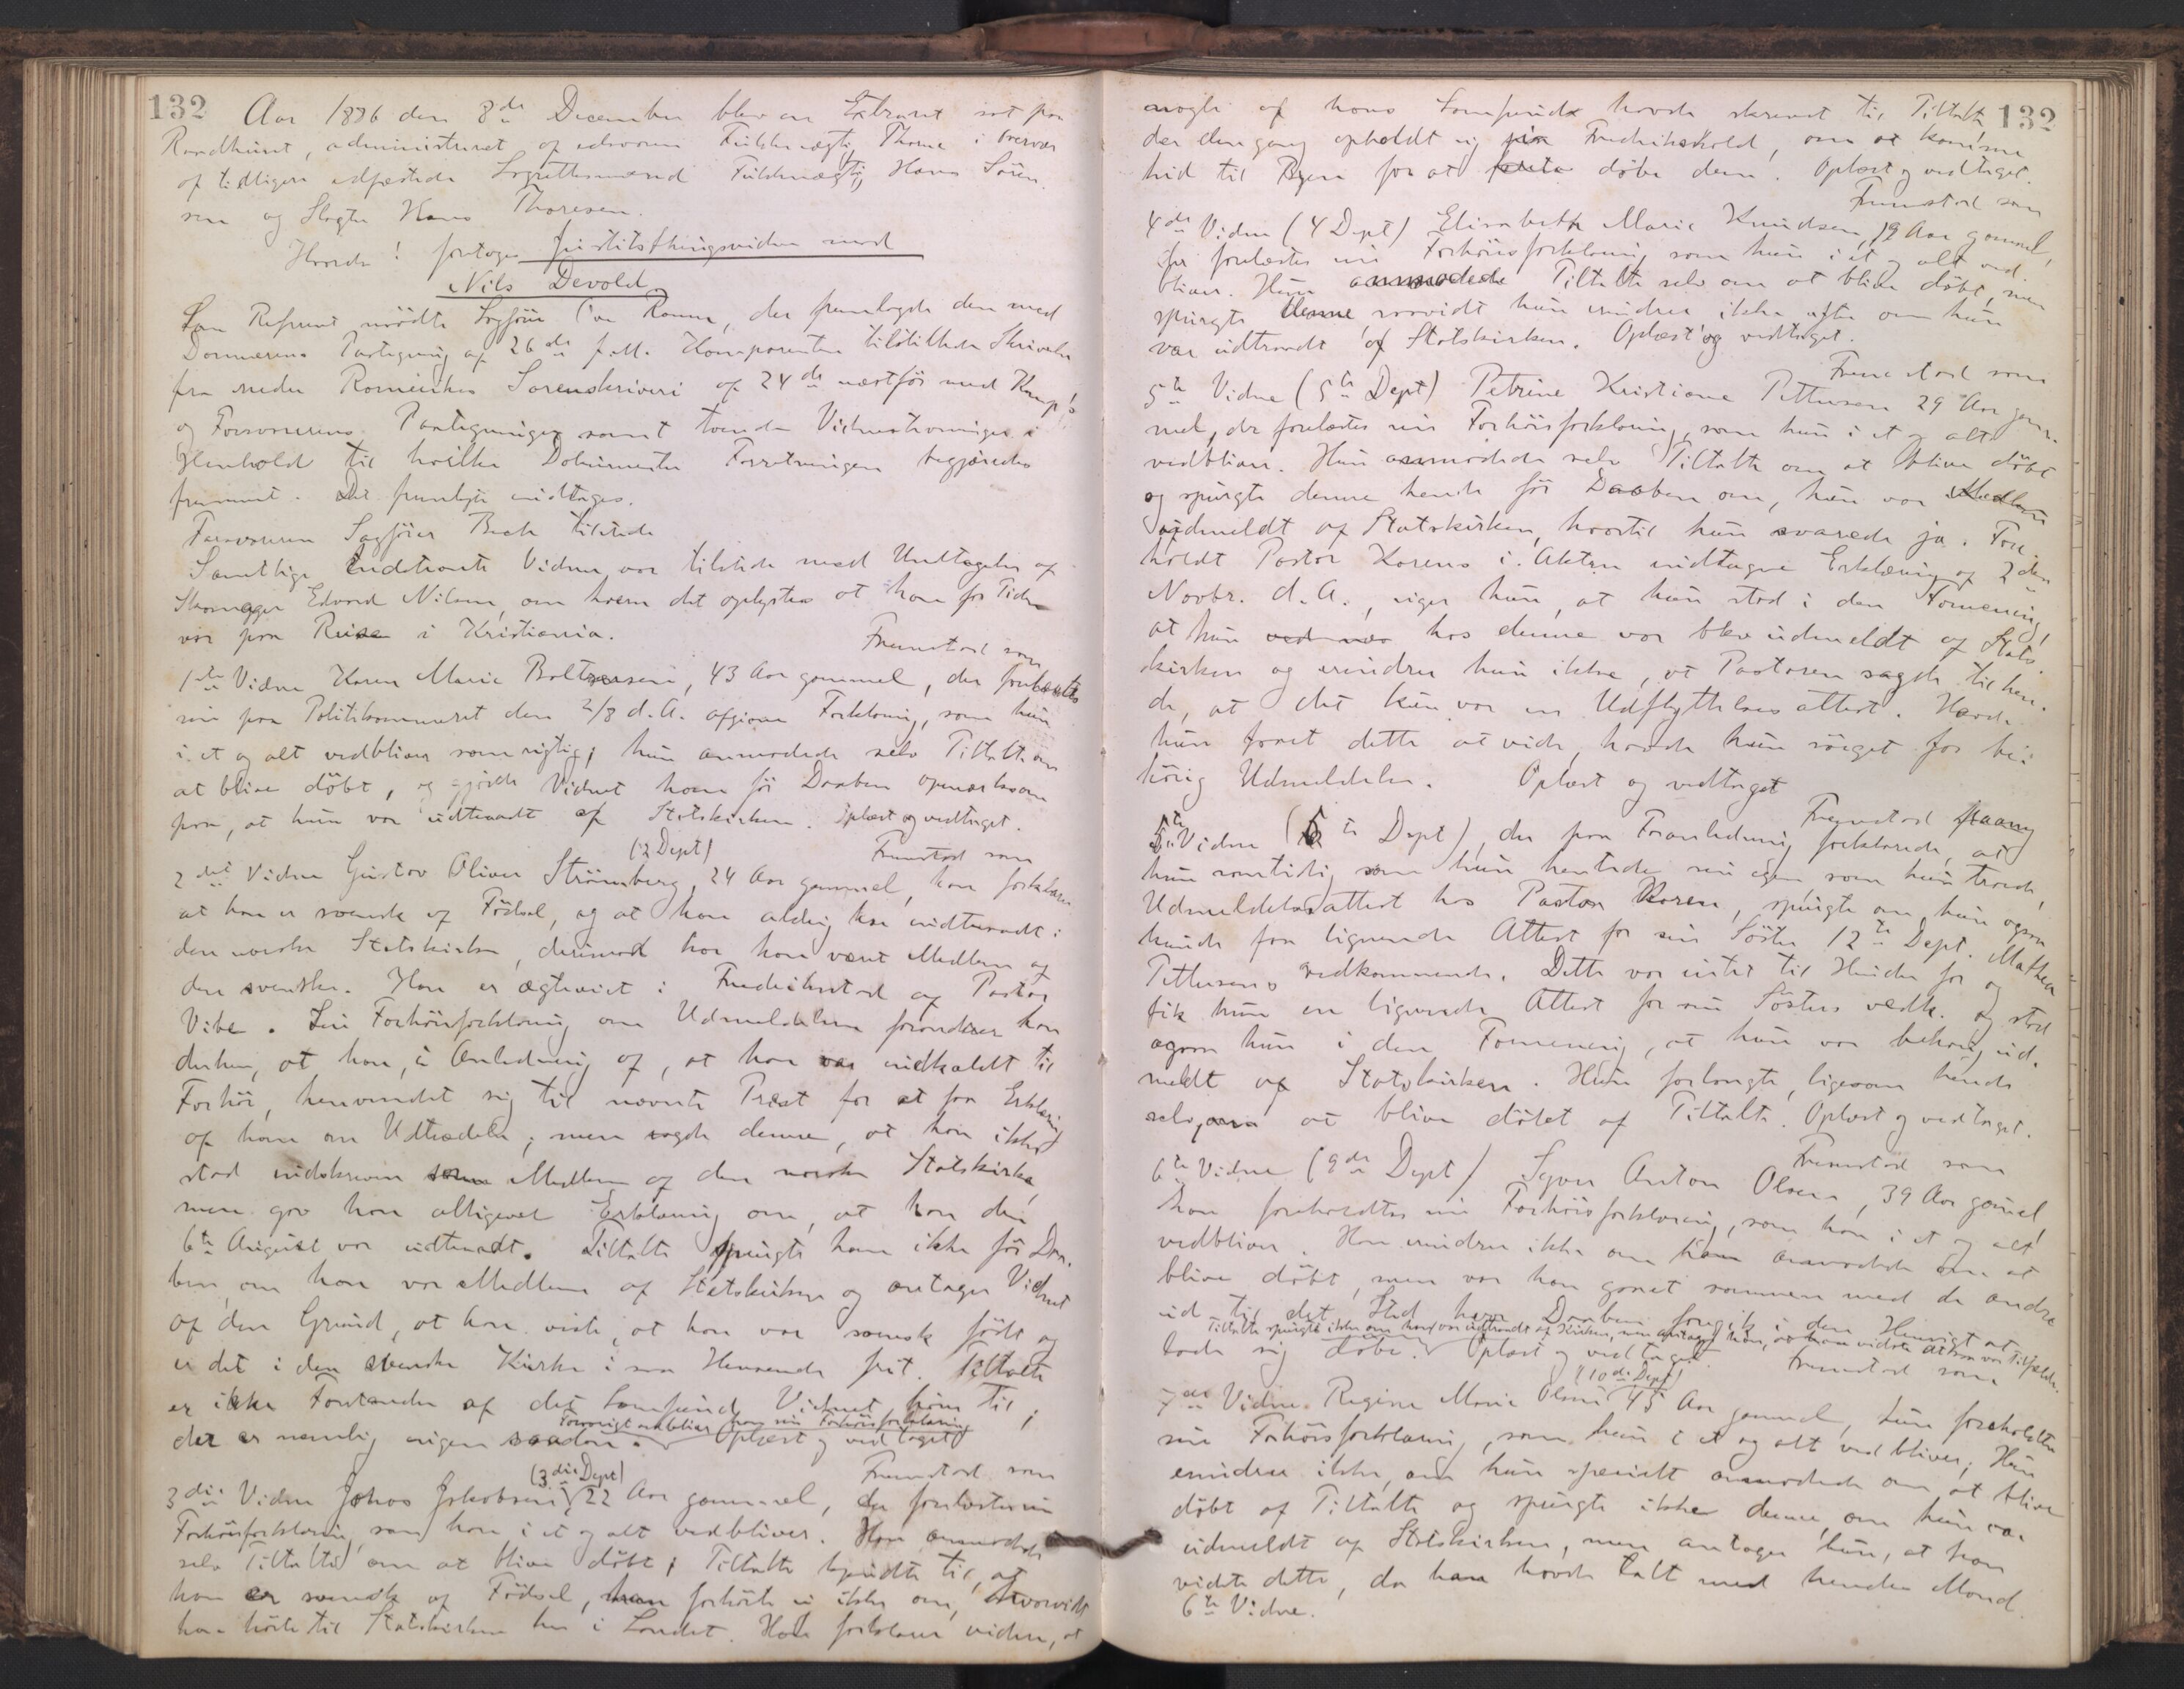 132
Aar 1886 den 8de December blev en Extraret sat paa
Raadhuset, administreret af edsvoren Fuldmægtig Thome i Overvær
af tidligere edfæstede Lagrettesmænd Fuldmægtig Hans Sören-
sen og Slagter Hans Thoresen.
Hvorda! foretoges Justitsthingsvidne mod
Nils Devold
Som Referent mödte Sagförer Ramm, der fremlagde den med
Dommerens Paategning af 26de f.M. Komparenten tilstillede Skrivelse
fra nedre Romerikes Sorenskriveri af 24de næstför med Komp's
og Forsvarerens Paategninger samt tvende Vidnestevninger i
Henhold til hvilke Dokumenter Forretningen begjæredes
fremmet. Det fremlagte indtages.
Forsvareren Sagförer Bech tilstede
Samtlige indstevnte Vidner var tilstede med Undtagelse af
Skomager Edvard Nilsen, om hvem det oplystes at han for Tiden
var paa Reise i Kristiania.
Fremstod som
1ste Vidne Karen Marie Baltzersen, 43 Aar gammel, der forelæstes
sin paa Politikammeret den 2/8 d.A. afgivne Forklaring, som hun
i et og alt vedbliver som rigtig; hun anmodede selv Tiltalte om
at blive döbt, og gjorde Vidnet ham för Daaben opmærksom
paa, at hun var udtraadt af Statskirken. Oplæst og vedtaget.
(2 Dept) Fremstod som
2det Vidne Gustav Oliver Strömberg, 24 Aar gammel, han forklarer
at han er svensk af Födsel, og at han aldrig har indtraadt i
den norske Statskirke, derimod har han været Medlem af
den svenske. Han er ægteviet i Fredrikstad af Pastor
Vibe. Sin Forhörsforklaring om Udmeldelsen forandrer han
derhen, at han, i Anledning af, at han var indkaldt til
Forhör, henvendte sig til nævnte Præst for at faa Erklæring
af ham om Udtrædelse; men sagde denne, at han ikke
stod indskreven som Medlem af den norske Statskirke,
men gav ham alligevel Erklæring om, at han den
6te August var udtraadt. Tiltalte spurgte ham ikke för Daa-
ben, om han var Medlem af Statskirken og antager Vidnet
af den Grund, at han viste, at han var svensk födt og
er det i den svenske Kirke i saa Henseende frit. Tiltalte
er ikke Forstander af det Samfund Vidnet hörer til;
Forövrigt vedbliver han sin Forhörsforklaring
der er nemlig ingen saadan. Oplæst og vedtaget
(3die Dept) Fremstod som
3die Vidne Johas Jakobsen 22 Aar gammel, der forelæstes sin
Forhörsforklaring, som han i et og alt vedbliver. Han anmodede
selv Tiltalte om at blive döbt; Tiltalte kjendte til, at
han er svensk af Födsel, han forhörte sig ikke om, hvorvidt
han hörte til Statskirken her i Landet. Han forklarer videre, at
132
nogle af hans Samfund havde skrevet til Tiltalte
der dengang opholdt sig paa Fredrikshald, om at komme
hid til Byen for at döbe dem. Oplæst og vedtaget.
Fremstod som
4de Vidne (4 Dept) Elisabeth Marie Knudsen, 19 Aar gammel,
der forelæstes sin Forhörsforklaring som hun i et og alt ved-
bliver. Hun anmodede Tiltalte selv om at blive döbt, men
spurgte denne saavidt hun erindrer ikke efter om hun
var udtraadt af Statskirken. Oplæst og vedtaget.
Fremstod som
5te Vidne (5te Dept) Petrine Kristiane Pettersen 29 Aar gam-
mel, der forelæstes sin Forhörsforklaring, som hun i et og alt
vedbliver. Hun anmodede selv Tiltalte om at blive döbt
og spurgte denne hende för Daaben om, hun var
udmeldt af Statskirken, hvortil hun svarede ja. Fore-
holdt Pastor Korens i Akten indtagne Erklæring af 2den
Novbr. d.A., siger hun, at hun stod i den Formening,
at hun hos denne var blev udmeldt af Stats-
kirken og erindrer hun ikke, at Pastoren sagde til hen-
de, at det kun var en Udflyttelses attest. Havde
hun faaet dette at vide, havde hun sörget for be-
hörig Udmeldelse. Oplæst og vedtaget
Fremstod paany
5te Vidne (5te Dept), der paa Foranledning forklarede, at
hun samtidig som hun hentede sin egen som hun troede,
Udmeldelsesattest hos Pastor Koren, spurgte om hun ogsaa
kunde faa lignende Attest for sin Söster 12te Dept. Mathea
Pettersens vedkommende. Dette var intet til Hinder for og
fik hun en lignende Attest for sin Sösters vedk. og stod
ogsaa hun i den Formening, at hun var behörig ud-
meldt af Statskirken. Hun forlangte ligesom hende
selv, om at blive döbet af Tiltalte. Oplæst og vedtaget.
Fremstod som
6te Vidne (9de Dept) Syver Anton Olsen, 39 Aar gamel
han foreholdtes sin Forhörsforklaring, som han i et og alt
vedbliver. Han erindrer ikke om han anmodede om at
blive döbt, men var han gaaet sammen med de andre
ud til det Sted hvor Daaben foregik i den Hensigt at
Tiltalte spurgte ikke om han var udtraadt af Kirken, men antager han, at han vidste at han var Tilfælde.
lade sig döbe. Oplæst og vedtaget. Fremstod som
(10de Dept)
7de Vidne Regine Marie Olsen 45 Aar gammel, hun foreholdtes
sin Forhörsforklaring, som hun i et og alt vedbliver; Hun
erindrer ikke, om hun specielt anmodede om at blive
döbt af Tiltalte og spurgte ikke denne om hun var
udmeldt af Statskirken, men antager hun, at han
vidste dette, da han havde talt med hendes Mand
6te Vidne.